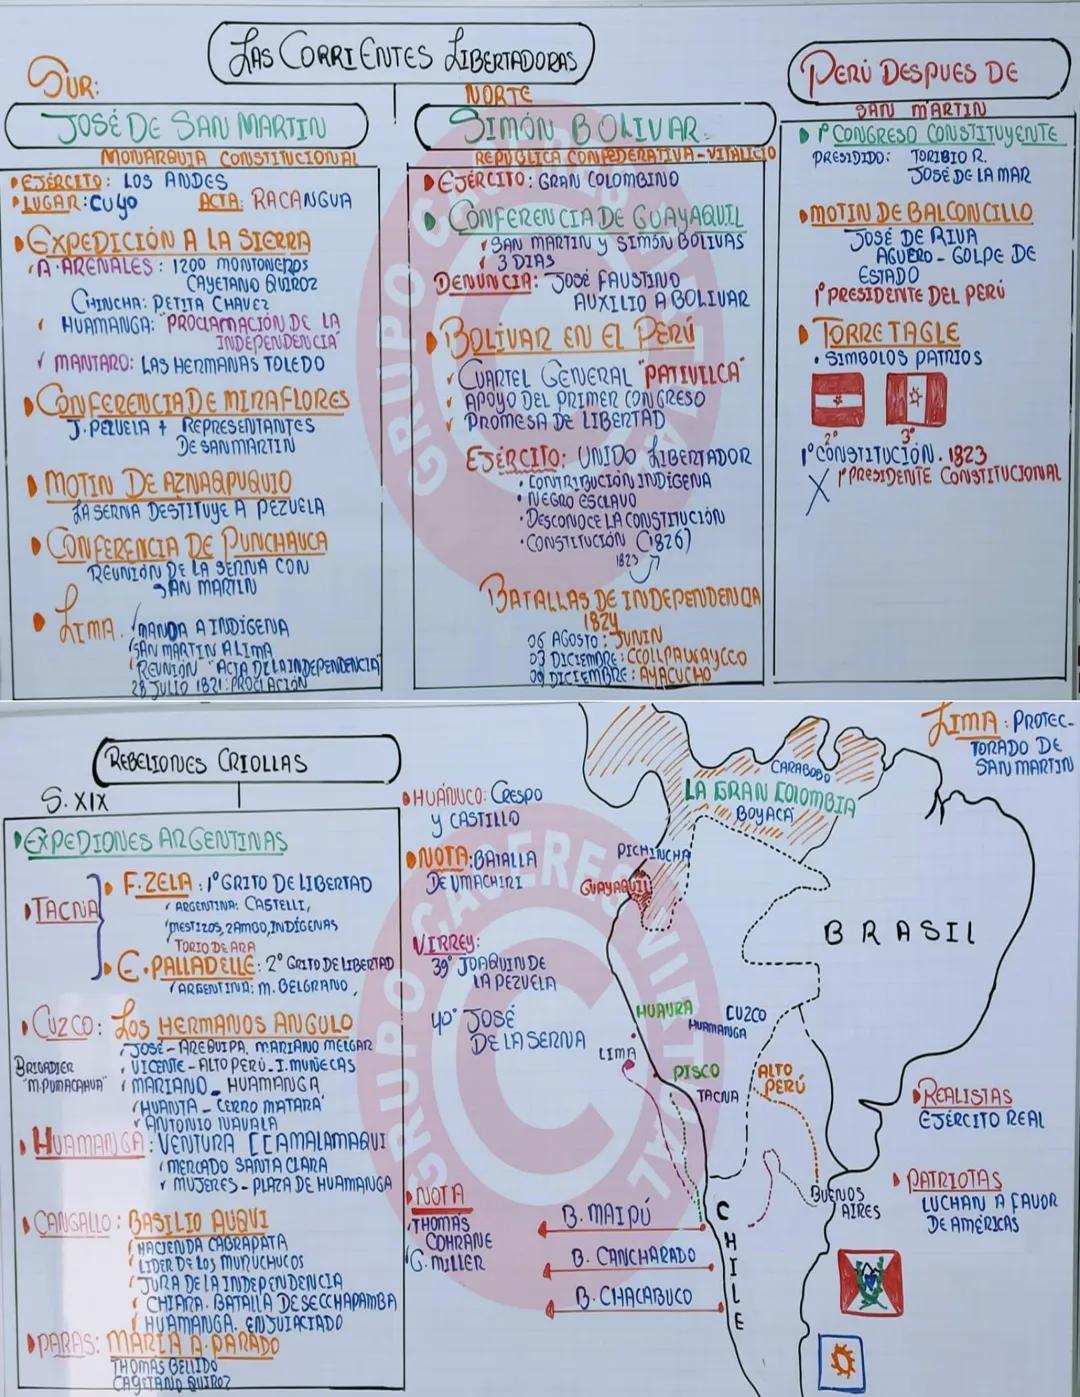 LAS CORRIENTES LIBERTADORAS
SUR:
JOSÉ DE SAN MARTIN
MONARQUIA CONSTITUCIONAL
EJÉRCITO: LOS ANDES
LUGAR: CUYO ACTA: RACANGUA
EXPEDICIÓN A LA SIERRA
A. ARENALES: 1200 MONTONEROS
CAYETANO QUIROZ
CHINCHA: PETITA CHAVEZ
HUAMANGA: "PROCLAMACIÓN DE LA
INDEPENDENCIA"
MANTARO: LAS HERMANAS TOLEDO
CONFERENCIA DE MIRAFLORES
J. PEZUELA + REPRESENTANTES
DE SAN MARTIN
MOTIN DE AZNAQPUQUIO
LA SERNA DESTITUYE A PEZUELA
CONFERENCIA DE PUNCHAUCA
REUNIÓN DE LA SERNA CON
SAN MARTIN
LIMA.
MANDA A INDÍGENA
SAN MARTIN A LIMA
REUNIÓN "ACTA DE LA INDEPENDENCIA"
28 JULIO 1821: PROCLACIÓN
NORTE
SIMÓN BOLIVAR
REPÚBLICA CONFEDERATIVA - VITALICIO
EJÉRCITO: GRAN COLOMBINO
CONFERENCIA DE GUAYAQUIL
SAN MARTIN Y SIMÓN BOLIVAS
3 DIAS
DENUNCIA: JOSÉ FAUSTINO
AUXILIO A BOLIVAR
BOLÍVAR EN EL PERÚ
CUARTEL GENERAL "PATIVILCA"
APOYO DEL PRIMER CONGRESO
PROMESA DE LIBERTAD
EJÉRCITO: UNIDO LIBERTADOR
CONTRIBUCIÓN INDÍGENA
NEGRO ESCLAVO
DESCONOCE LA CONSTITUCIÓN
CONSTITUCIÓN (1826)
1823
BATALLAS DE INDEPENDENCIA
1824
06 AGOSTO: JUNIN
03 DICIEMBRE: CCOLLPAHUAYCCO
09 DICIEMBRE: AYACUCHO
PERÚ DESPUES DE
SAN MARTIN
1º CONGRESO CONSTITUYENTE
PRESIDIDO: TORIBIO R.
JOSÉ DE LA MAR
MOTIN DE BALCONCILLO
JOSÉ DE RIVA
AGUERO - GOLPE DE
ESTADO
1º PRESIDENTE DEL PERÚ
TORRE TAGLE
SIMBOLOS PATRIOS
2º 3º
1º CONSTITUCIÓN. 1823
1º PRESIDENTE CONSTITUCIONAL
REBELIONES CRIOLLAS
S. XIX
EXPEDIONES ARGENTINAS
TACNA
F. ZELA: 1º GRITO DE LIBERTAD
ARGENTINA: CASTELLI,
MESTIZOS, ZAMBO, INDÍGENAS
TORIO DE ARA
E. PALLADELLE: 2º GRITO DE LIBERTAD
ARGENTINA: M. BELGRANO,
CUZCO: LOS HERMANOS ANGULO
JOSÉ - AREQUIPA. MARIANO MELGAR
BRIGADIER
"M. PUMACAHUA"
VICENTE - ALTO PERÚ - I. MUÑECAS
MARIANO - HUAMANGA
HUANTA - CERRO MATARÁ
ANTONIO NAVALA
HUAMANGA: VENTURA CCAMALAMAQUI
MERCADO SANTA CLARA
MUJERES - PLAZA DE HUAMANGA
CANGALLO: BASILIO AUQUI
HACIENDA CABRAPATA
LIDER DE LOS MURUCHUCOS
JURA DE LA INDEPENDENCIA
CHIARA. BATALLA DE SECCHAPAMBA
HUAMANGA. ENJUIACIADO
PARAS: MARIA A. PARADO
THOMÁS BELLIDO
CAYETANO QUIROZ
HUÁNUCO: CRESPO
Y CASTILLO
NOTA: BATALLA
DE UMACHIRI
VIRREY:
39º JOAQUIN DE
LA PEZUELA
40º JOSÉ
DE LA SERNA
NOTA
THOMÁS
COHRANE
G. MILLER
CARABOBO
LA GRAN COLOMBIA
BOYACÁ
PICHINCHA
GUAYAQUIL
BRASIL
HUAURA
CUZCO
HUAMANGA
LIMA
PISCO
TACNA
ALTO
PERÚ
BUENOS
AIRES
CHILE
B. MAIPÚ
B. CANCHARADO
B. CHACABUCO
LIMA: PROTEC-
TORADO DE
SAN MARTIN
REALISTAS
EJÉRCITO REAL
PATRIOTAS
LUCHAN A FAVOR
DE AMÉRICAS